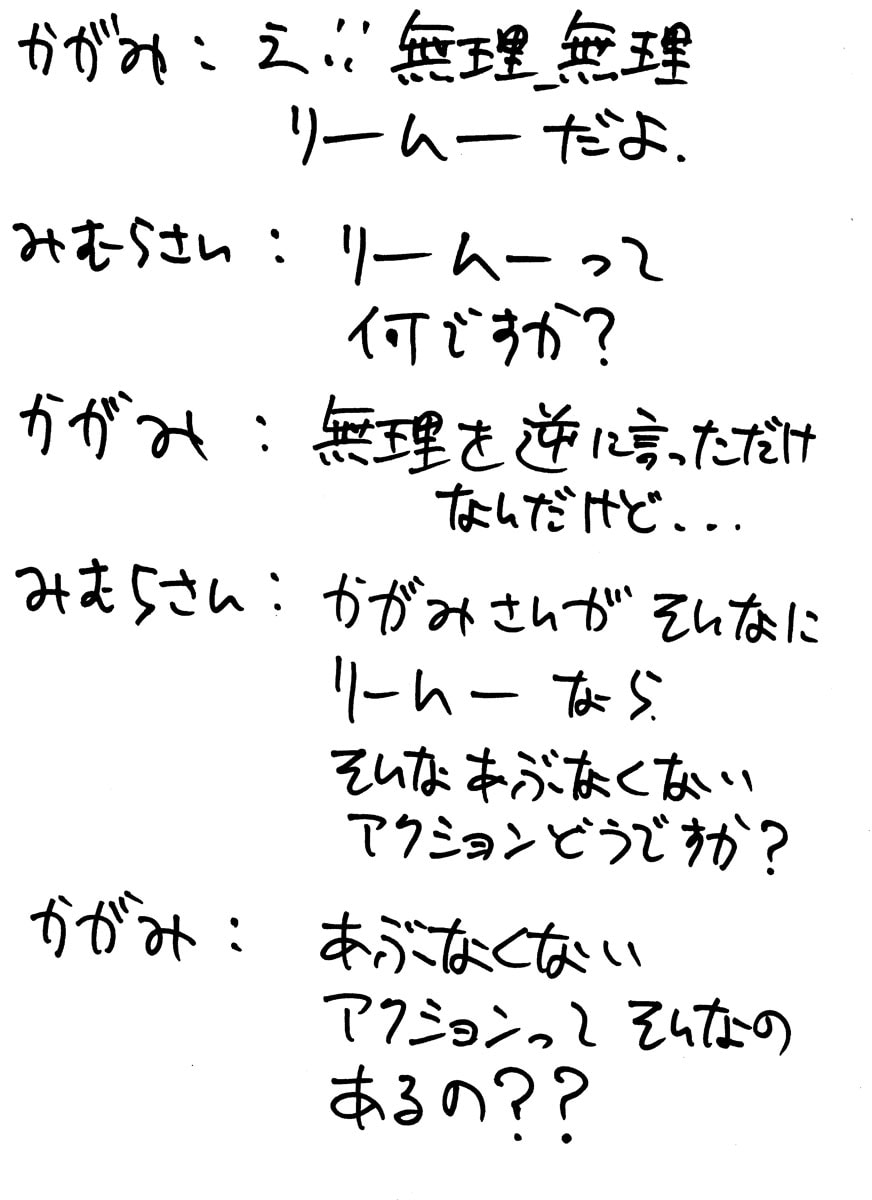 かがみ：え!!無理_無理
リームーだよ.
みむらさん：リームーって
何ですか？
かがみ：無理を逆に言っただけ
なんだけど...
みむらさん：かがみさんがそんなに
リームーなら.
そんなあぶなくない
アクションどうですか？
かがみ：あぶなくない
アクションってそんなの
あるの？？